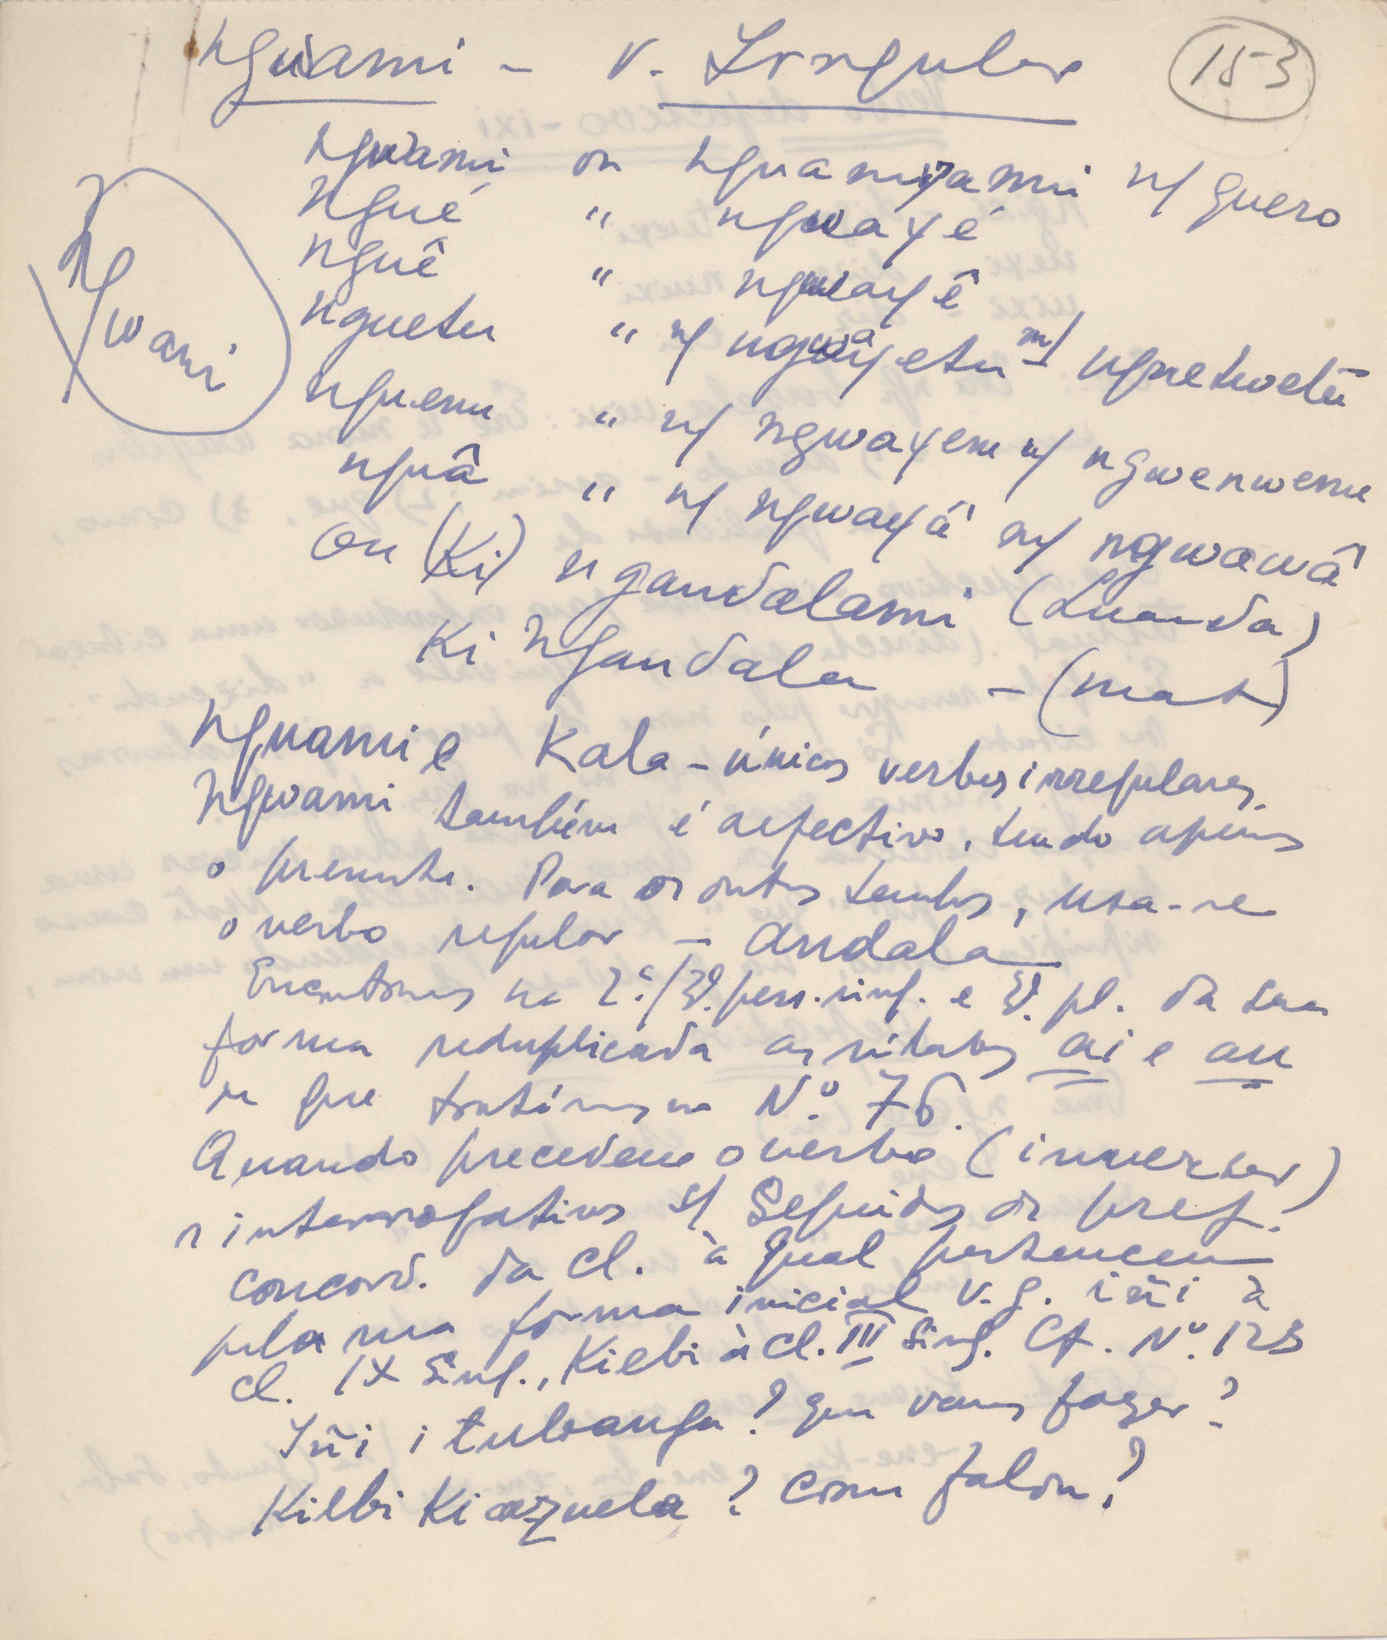 Nguami - v. Irregular
153
Nguami ou nguamiyami n/ quero
Ngué " ngwáyé
Nguê " ngwayê
nguetu " n/ ngwayetu n/ nguetwetu
nguenu " n/ ngwayenu n/ ngwenwenu
nguâ " n/ ngwayâ n/ ngwawâ
Ngwami
ou (Ki) ngandalami (Luanda)
Ki Ngandala - (mat)
Nguami e Kala - únicos verbos irregulares.
Ngwami também é defectivo, tendo apenas
o presente. Para os outros tempos, usa-se
o verbo regular - andala
Encontramos na 2ª/3ª. pess. sing. e 3ª. pl. da sua
forma reduplicada as sílabas ai e au
de que tratámos no Nº. 76.
Quando precedem o verbo (inverter)
os interrogativos s/ seguidos do pref.
concord. da cl. à qual pertencem
pela sua forma inicial v.g. iñi à
cl. IX sing., Kiebi à cl. III sing. Cf. Nº. 123
Iñi i tubanga? que vamos fazer?
Kiebi Ki azuela? como falou?